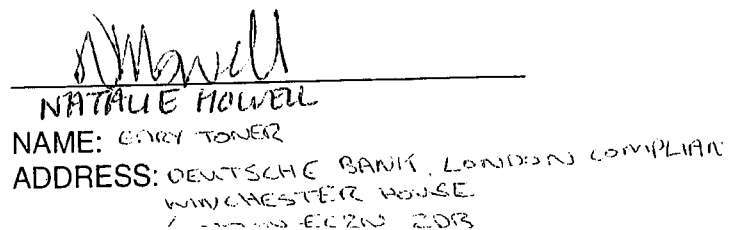 NMowell
NATALIE MOWELL
NAME: GARY TONER
ADDRESS: DEUTSCHE BANK, LONDON COMPLIAN
WINCHESTER HOUSE
LONDON EC2N 2DB